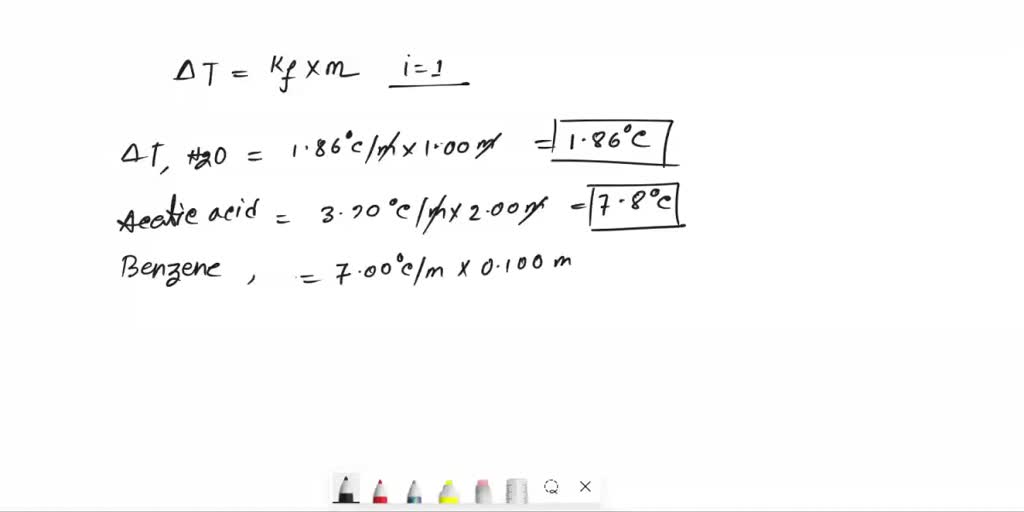 ΔT = Kf × m i = 1
ΔT, H2O = 1.86°C/m × 1.00 m = 1.86°C
Acetic acid = 3.90°C/m × 2.00 m = 7.8°C
Benzene, = 7.00°C/m × 0.100 m